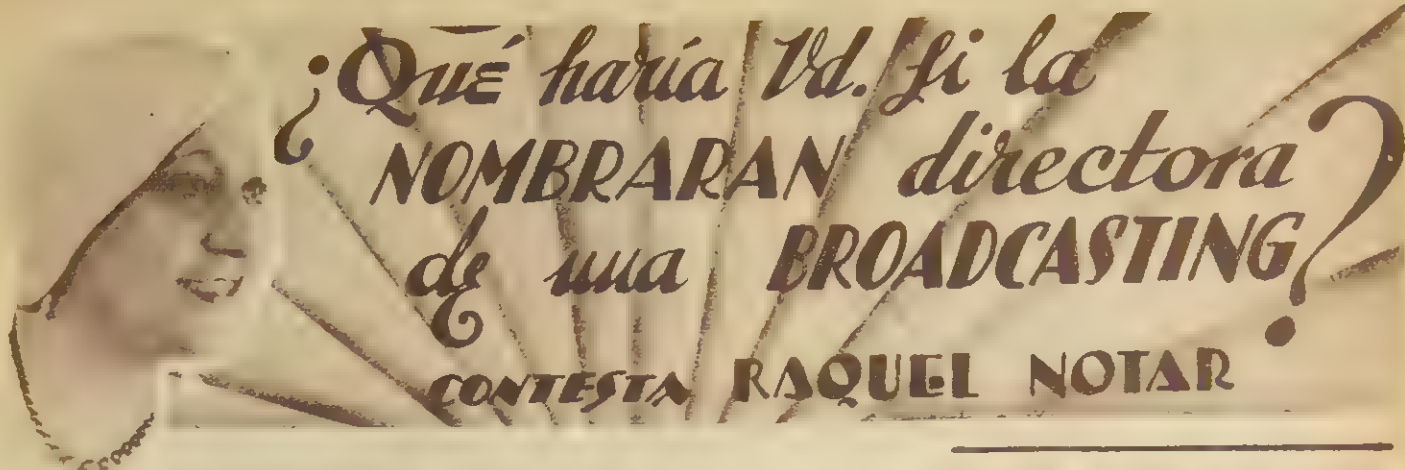 ¿Qué haría Vd. si la
NOMBRARAN directora
de una BROADCASTING?
CONTESTA RAQUEL NOTAR